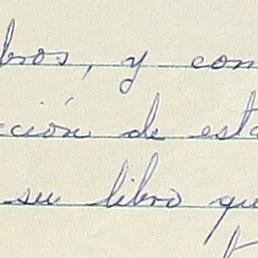 bros, y con
cción de esta
su libro qu